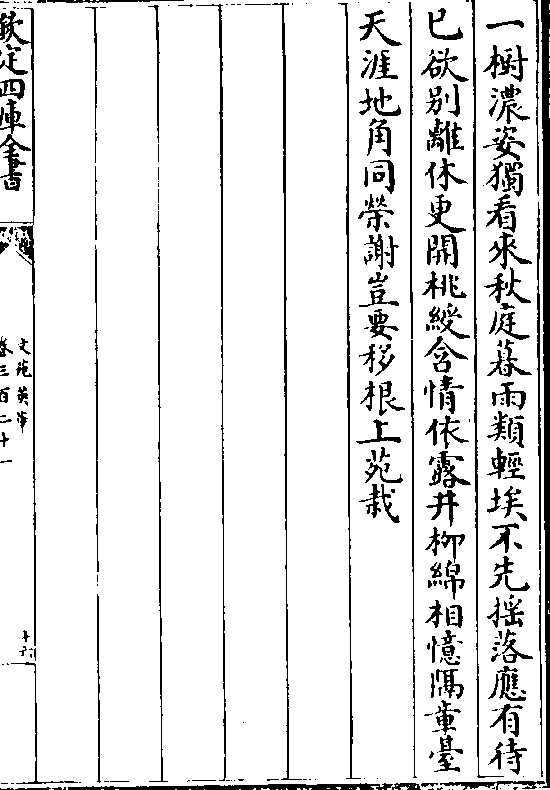 一樹濃姿獨看來秋庭暮雨類輕埃不先揺落應有待
已欲別離休更開桃綬含情依露井栁綿相憶隔章臺
天涯地角同榮謝豈要移根上苑栽
欽定四庫全書
文苑英華
卷三百二十一
十六